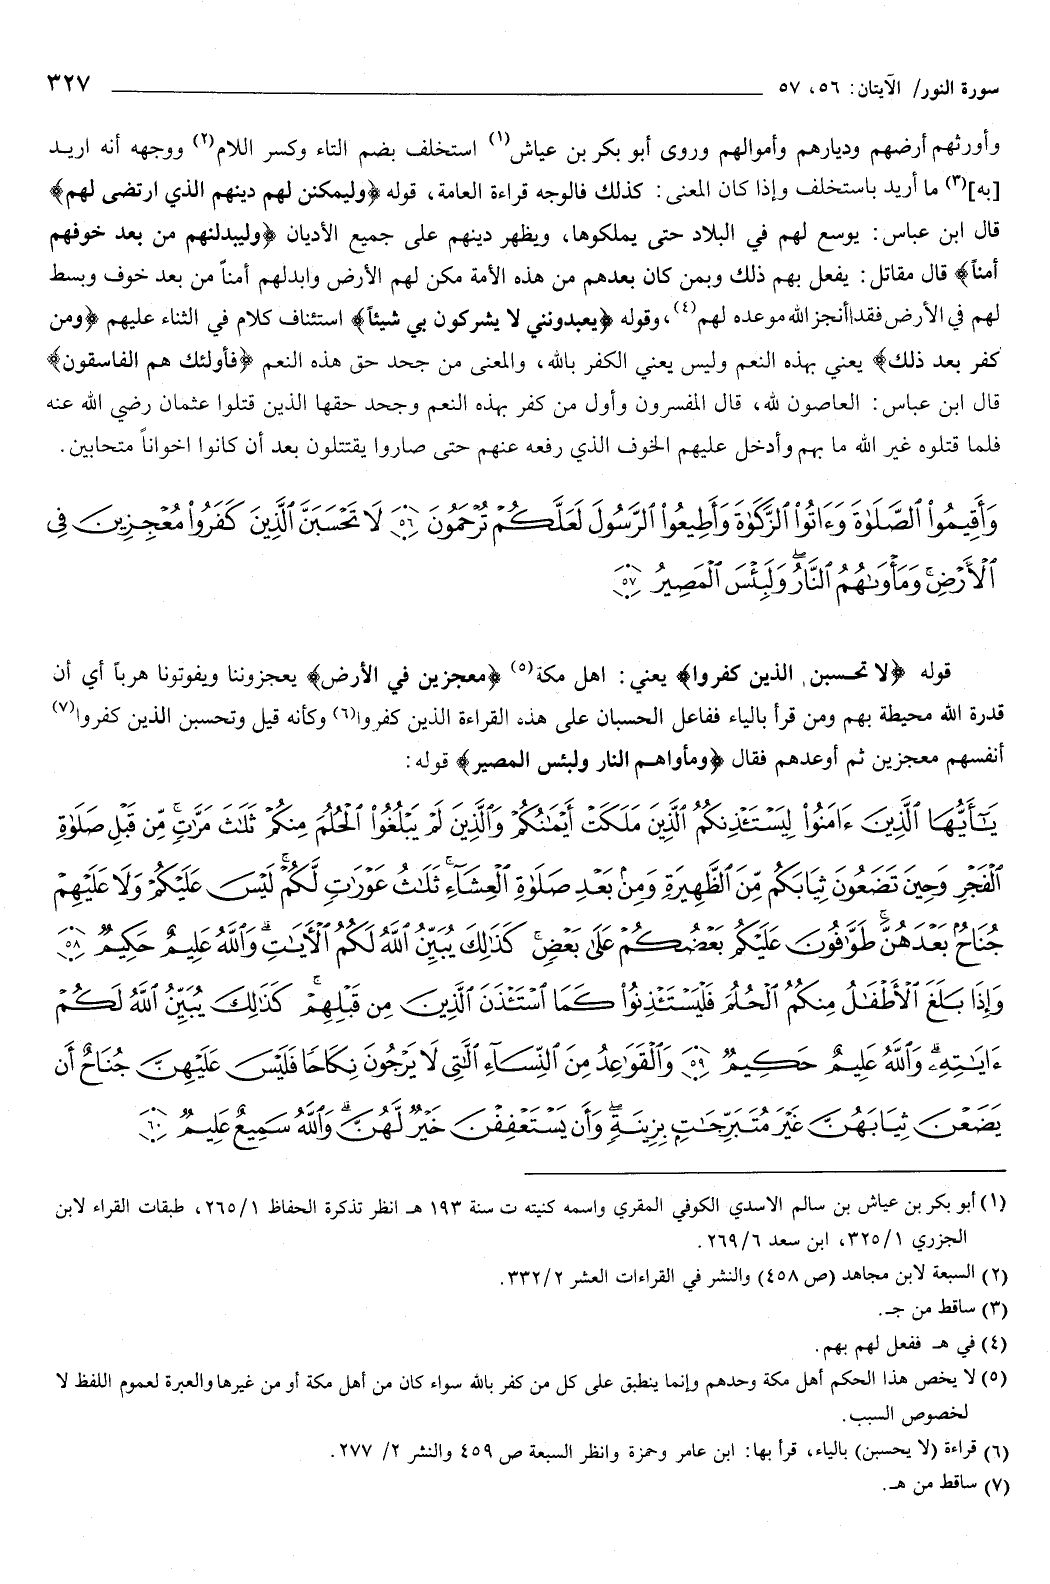 سورة النور/ الآيتان: ٥٦، ٥٧
٣٢٧
وأورثهم أرضهم وديارهم وأموالهم وروى أبو بكر بن عياش(١) استخلف بضم التاء وكسر اللام(٢) ووجهه أنه اريد
[به](٣) ما أريد باستخلف وإذا كان المعنى: كذلك فالوجه قراءة العامة، قوله ﴿وليمكنن لهم دينهم الذي ارتضى لهم﴾
قال ابن عباس: يوسع لهم في البلاد حتى يملكوها، ويظهر دينهم على جميع الأديان ﴿وليبدلنهم من بعد خوفهم
أمناً﴾ قال مقاتل: يفعل بهم ذلك وبمن كان بعدهم من هذه الأمة مكن لهم الأرض وابدلهم أمناً من بعد خوف وبسط
لهم في الأرض فقد أنجز الله موعده لهم(٤)، وقوله ﴿يعبدونني لا يشركون بي شيئاً﴾ استئناف كلام في الثناء عليهم ﴿ومن
كفر بعد ذلك﴾ يعني بهذه النعم وليس يعني الكفر بالله، والمعنى من جحد حق هذه النعم ﴿فأولئك هم الفاسقون﴾
قال ابن عباس: العاصون لله، قال المفسرون وأول من كفر بهذه النعم وجحد حقها الذين قتلوا عثمان رضي الله عنه
فلما قتلوه غير الله ما بهم وأدخل عليهم الخوف الذي رفعه عنهم حتى صاروا يقتتلون بعد أن كانوا اخواناً متحابين.
وَأَقِيمُوا۟ ٱلصَّلَوٰةَ وَءَاتُوا۟ ٱلزَّكَوٰةَ وَأَطِيعُوا۟ ٱلرَّسُولَ لَعَلَّكُمْ تُرْحَمُونَ ٥٦ لَا تَحْسَبَنَّ ٱلَّذِينَ كَفَرُوا۟ مُعْجِزِينَ فِى
ٱلْأَرْضِ ۚ وَمَأْوَىٰهُمُ ٱلنَّارُ ۖ وَلَبِئْسَ ٱلْمَصِيرُ ٥٧
قوله ﴿لا تحسبن الذين كفروا﴾ يعني: اهل مكة(٥) ﴿معجزين في الأرض﴾ يعجزوننا ويفوتونا هرباً أي أن
قدرة الله محيطة بهم ومن قرأ بالياء ففاعل الحسبان على هذه القراءة الذين كفروا(٦) وكأنه قيل وتحسبن الذين كفروا(٧)
أنفسهم معجزين ثم أوعدهم فقال ﴿ومأواهم النار ولبئس المصير﴾ قوله:
يَـٰٓأَيُّهَا ٱلَّذِينَ ءَامَنُوا۟ لِيَسْتَـْٔذِنكُمُ ٱلَّذِينَ مَلَكَتْ أَيْمَـٰنُكُمْ وَٱلَّذِينَ لَمْ يَبْلُغُوا۟ ٱلْحُلُمَ مِنكُمْ ثَلَـٰثَ مَرَّٰتٍ ۚ مِّن قَبْلِ صَلَوٰةِ
ٱلْفَجْرِ وَحِينَ تَضَعُونَ ثِيَابَكُم مِّنَ ٱلظَّهِيرَةِ وَمِنۢ بَعْدِ صَلَوٰةِ ٱلْعِشَآءِ ۚ ثَلَـٰثُ عَوْرَٰتٍ لَّكُمْ ۚ لَيْسَ عَلَيْكُمْ وَلَا عَلَيْهِمْ
جُنَاحٌۢ بَعْدَهُنَّ ۚ طَوَّٰفُونَ عَلَيْكُم بَعْضُكُمْ عَلَىٰ بَعْضٍ ۚ كَذَٰلِكَ يُبَيِّنُ ٱللَّهُ لَكُمُ ٱلْـَٔايَـٰتِ ۗ وَٱللَّهُ عَلِيمٌ حَكِيمٌ ٥٨
وَإِذَا بَلَغَ ٱلْأَطْفَـٰلُ مِنكُمُ ٱلْحُلُمَ فَلْيَسْتَـْٔذِنُوا۟ كَمَا ٱسْتَـْٔذَنَ ٱلَّذِينَ مِن قَبْلِهِمْ ۚ كَذَٰلِكَ يُبَيِّنُ ٱللَّهُ لَكُمْ
ءَايَـٰتِهِۦ ۗ وَٱللَّهُ عَلِيمٌ حَكِيمٌ ٥٩ وَٱلْقَوَٰعِدُ مِنَ ٱلنِّسَآءِ ٱلَّـٰتِى لَا يَرْجُونَ نِكَاحًا فَلَيْسَ عَلَيْهِنَّ جُنَاحٌ أَن
يَضَعْنَ ثِيَابَهُنَّ غَيْرَ مُتَبَرِّجَـٰتٍۭ بِزِينَةٍ ۖ وَأَن يَسْتَعْفِفْنَ خَيْرٌ لَّهُنَّ ۗ وَٱللَّهُ سَمِيعٌ عَلِيمٌ ٦٠
(١) أبو بكر بن عياش بن سالم الاسدي الكوفي المقري واسمه كنيته ت سنة ١٩٣ هـ انظر تذكرة الحفاظ ٢٦٥/١، طبقات القراء لابن
الجزري ٣٢٥/١، ابن سعد ٢٦٩/٦.
(٢) السبعة لابن مجاهد (ص ٤٥٨) والنشر في القراءات العشر ٣٣٢/٢.
(٣) ساقط من جـ.
(٤) في هـ ففعل لهم بهم.
(٥) لا يخص هذا الحكم أهل مكة وحدهم وإنما ينطبق على كل من كفر بالله سواء كان من أهل مكة أو من غيرها والعبرة لعموم اللفظ لا
لخصوص السبب.
(٦) قراءة (لا يحسبن) بالياء، قرأ بها: ابن عامر وحمزة وانظر السبعة ص ٤٥٩ والنشر ٢/ ٢٧٧.
(٧) ساقط من هـ.